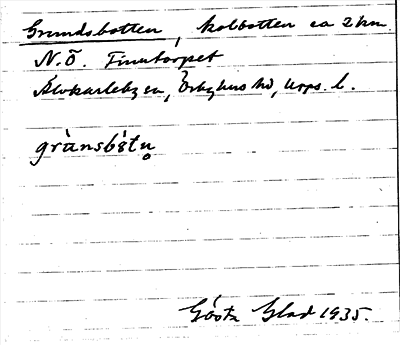 Grundsbotten, kolbotten ca 2 km
N.Ö. Finntorpet
Älvkarleby sn, Örbyhus hd, Upps. l.
grànsbótṇ
Gösta Glad 1935.